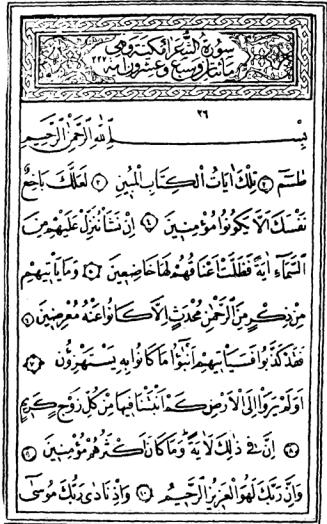 سورة الشعراء مكية وهى
مائتان وسبع وعشرون اية ٢٢٧
٢٦
بسم الله الرحمن الرحيم
طسم ﴿١﴾ تلك ايات الكتاب المبين ﴿٢﴾ لعلك باخع
نفسك الا يكونوا مؤمنين ﴿٣﴾ ان نشأ ننزل عليهم من
السماء اية فظلت اعناقهم لها خاضعين ﴿٤﴾ وما ياتيهم
من ذكر من الرحمن محدث الا كانوا عنه معرضين ﴿٥﴾
فقد كذبوا فسياتيهم انبؤا ما كانوا به يستهزؤن ﴿٦﴾
اولم يروا الى الارض كم انبتنا فيها من كل زوج كريم
﴿٧﴾ ان في ذلك لاية وما كان اكثرهم مؤمنين ﴿٨﴾
وان ربك لهو العزيز الرحيم ﴿٩﴾ واذ نادى ربك موسى